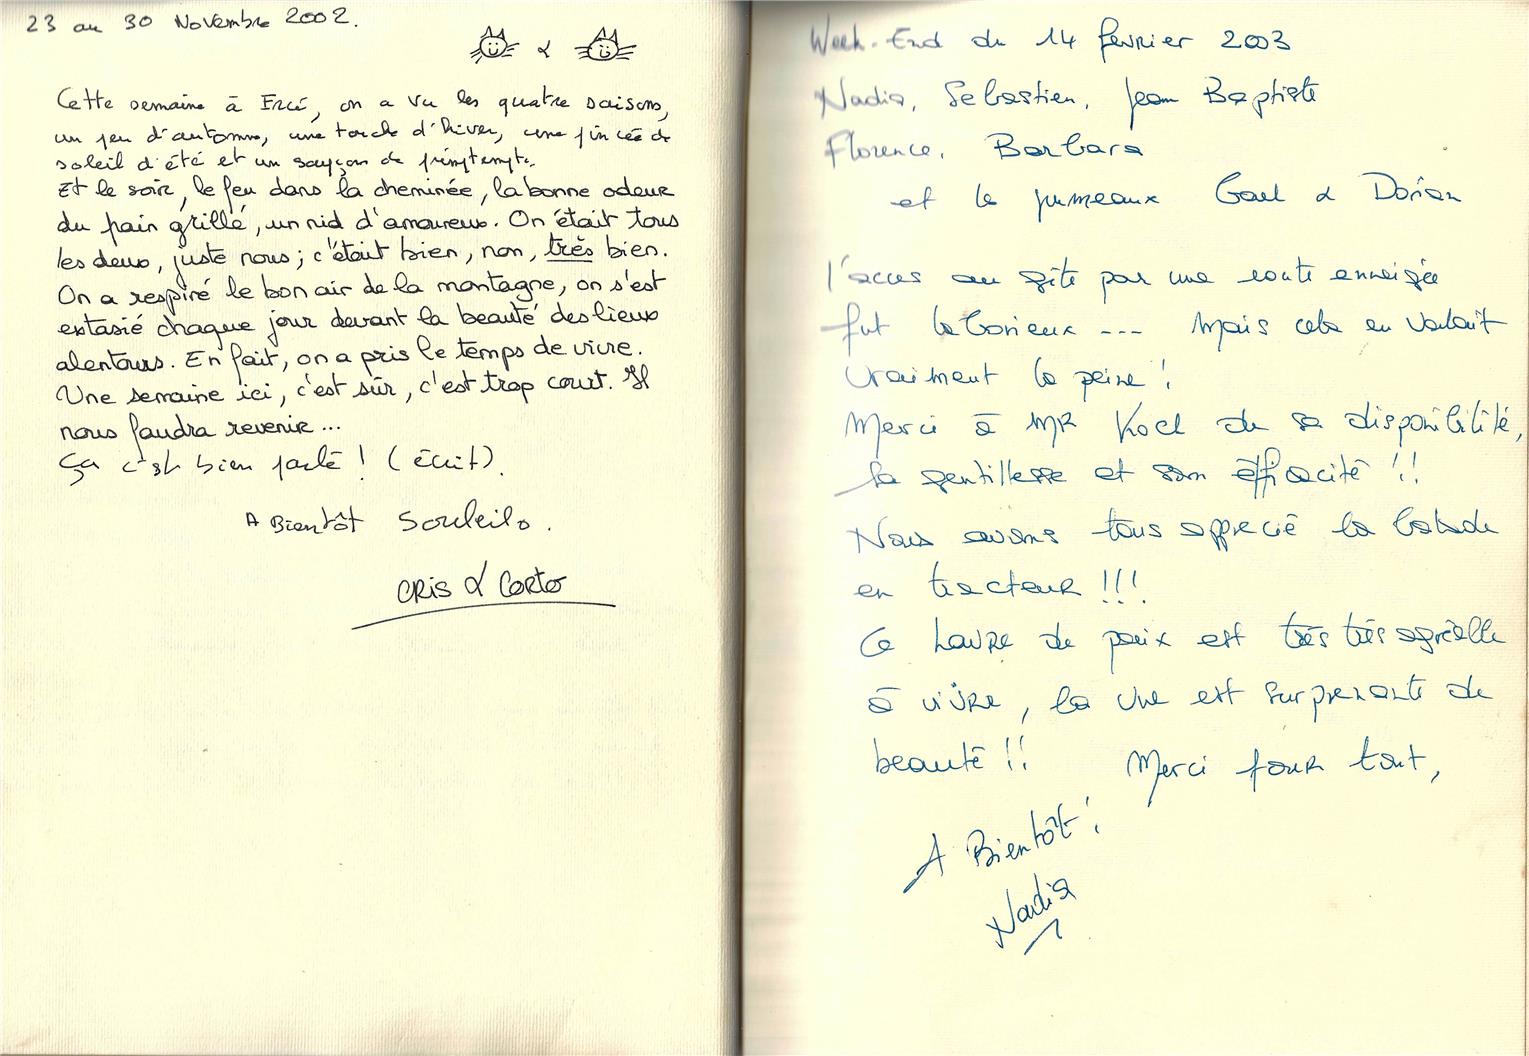 23 au 30 Novembre 2002.
&
Cette semaine à Ercé, on a vu les quatre saisons,
un peu d'automne, une touche d'hiver, une pincée de
soleil d'été et un soupçon de printemps.
Et le soir, le feu dans la cheminée, la bonne odeur
du pain grillé, un nid d'amoureux. On était tous
les deux, juste nous ; c'était bien, non, très bien.
On a respiré le bon air de la montagne, on s'est
extasié chaque jour devant la beauté des lieux
alentours. En fait, on a pris le temps de vivre.
Une semaine ici, c'est sûr, c'est trop court. Il
nous faudra revenir...
ça c'est bien parlé ! (écrit).
A Bientôt Souleilo.
CRIS & Corto
Week-End du 14 février 2003
Nadia, Sebastien, Jean Baptiste
Florence, Barbara
et les jumeaux Gael & Dorian
l'acces au gîte par une route enneigée
fut laborieux --- Mais cela en valait
vraiment la peine !
Merci à MR Kocl de sa disponibilité,
sa gentillesse et son éfficacité !!
Nous avons tous apprecié la balade
en tracteur !!!
Ce havre de paix est très très agréable
à vivre, la vue est surprenante de
beauté !! Merci pour tout,
A Bientôt !
Nadia